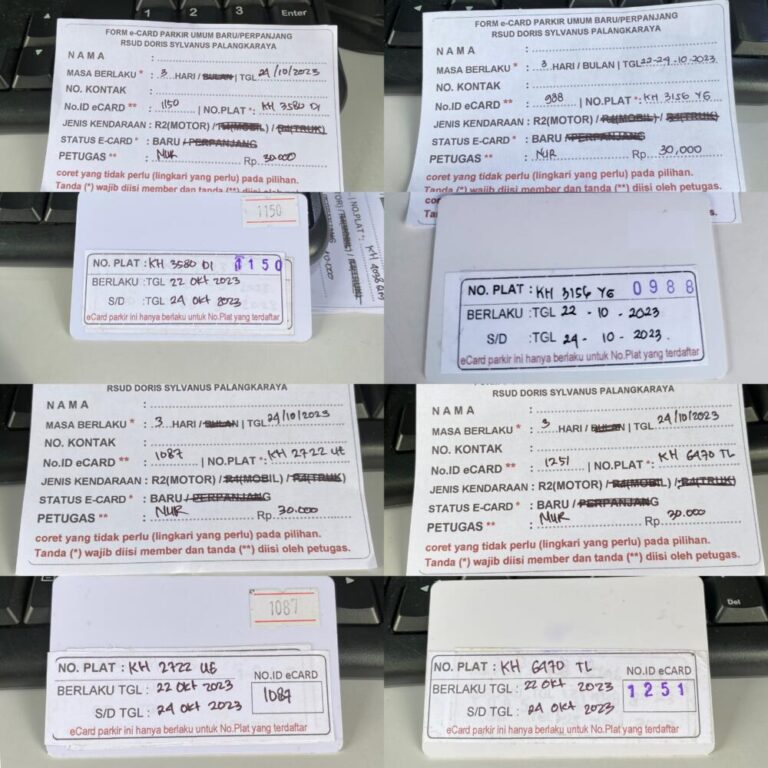 1 2 3 Enter
FORM e-CARD PARKIR UMUM BARU/PERPANJANG
RSUD DORIS SYLVANUS PALANGKARAYA
NAMA :
MASA BERLAKU * : 3 HARI / BULAN | TGL 24/10/2023
NO. KONTAK :
No.ID eCARD ** : 1150 | NO.PLAT *: KH 3580 DI
JENIS KENDARAAN : R2(MOTOR) / R4(MOBIL) / R4(TRUK)
STATUS E-CARD * : BARU / PERPANJANG
PETUGAS ** : NUR Rp. 30.000
coret yang tidak perlu (lingkari yang perlu) pada pilihan.
Tanda (*) wajib diisi member dan tanda (**) diisi oleh petugas.
FORM e-CARD PARKIR UMUM BARU/PERPANJANG
RSUD DORIS SYLVANUS PALANGKARAYA
NAMA :
MASA BERLAKU * : 3 HARI / BULAN | TGL 22-24-10-2023
NO. KONTAK :
No.ID eCARD ** : 988 | NO.PLAT *: KH 3156 YG
JENIS KENDARAAN : R2(MOTOR) / R4(MOBIL) / R4(TRUK)
STATUS E-CARD * : BARU / PERPANJANG
PETUGAS ** : NUR Rp. 30,000
coret yang tidak perlu (lingkari yang perlu) pada pilihan.
Tanda (*) wajib diisi member dan tanda (**) diisi oleh petugas.
1150
NO. PLAT : KH 3580 DI 1150
BERLAKU :TGL 22 OKT 2023
S/D :TGL 24 OKT 2023
eCard parkir ini hanya berlaku untuk No.Plat yang terdaftar
NO.PLAT *: KH
NO. PLAT : KH 3156 YG 0988
BERLAKU :TGL 22 - 10 - 2023
S/D :TGL 24 - 10 - 2023.
eCard parkir ini hanya berlaku untuk No.Plat yang terdaftar
RSUD DORIS SYLVANUS PALANGKARAYA
NAMA :
MASA BERLAKU * : 3 HARI / BULAN | TGL 24/10/2023
NO. KONTAK :
No.ID eCARD ** : 1087 | NO.PLAT *: KH 2722 UE
JENIS KENDARAAN : R2(MOTOR) / R4(MOBIL) / R4(TRUK)
STATUS E-CARD * : BARU / PERPANJANG
PETUGAS ** : NUR Rp. 30.000
coret yang tidak perlu (lingkari yang perlu) pada pilihan.
Tanda (*) wajib diisi member dan tanda (**) diisi oleh petugas.
RSUD DORIS SYLVANUS PALANGKARAYA
NAMA :
MASA BERLAKU * : 3 HARI / BULAN | TGL 24/10/2023
NO. KONTAK :
No.ID eCARD ** : 1251 | NO.PLAT *: KH 6470 TL
JENIS KENDARAAN : R2(MOTOR) / R4(MOBIL) / R4(TRUK)
STATUS E-CARD * : BARU / PERPANJANG
PETUGAS ** : NUR Rp. 30.000
coret yang tidak perlu (lingkari yang perlu) pada pilihan.
Tanda (*) wajib diisi member dan tanda (**) diisi oleh petugas.
1087
NO. PLAT : KH 2722 UE
NO.ID eCARD
BERLAKU TGL : 22 OKT 2023
1087
S/D TGL : 24 OKT 2023
eCard parkir ini hanya berlaku untuk No.Plat yang terdaftar
Del
NO. PLAT : KH 6470 TL
NO.ID eCARD
BERLAKU TGL : 22 OKT 2023
1251
S/D TGL : 24 OKT 2023
eCard parkir ini hanya berlaku untuk No.Plat yang terdaftar